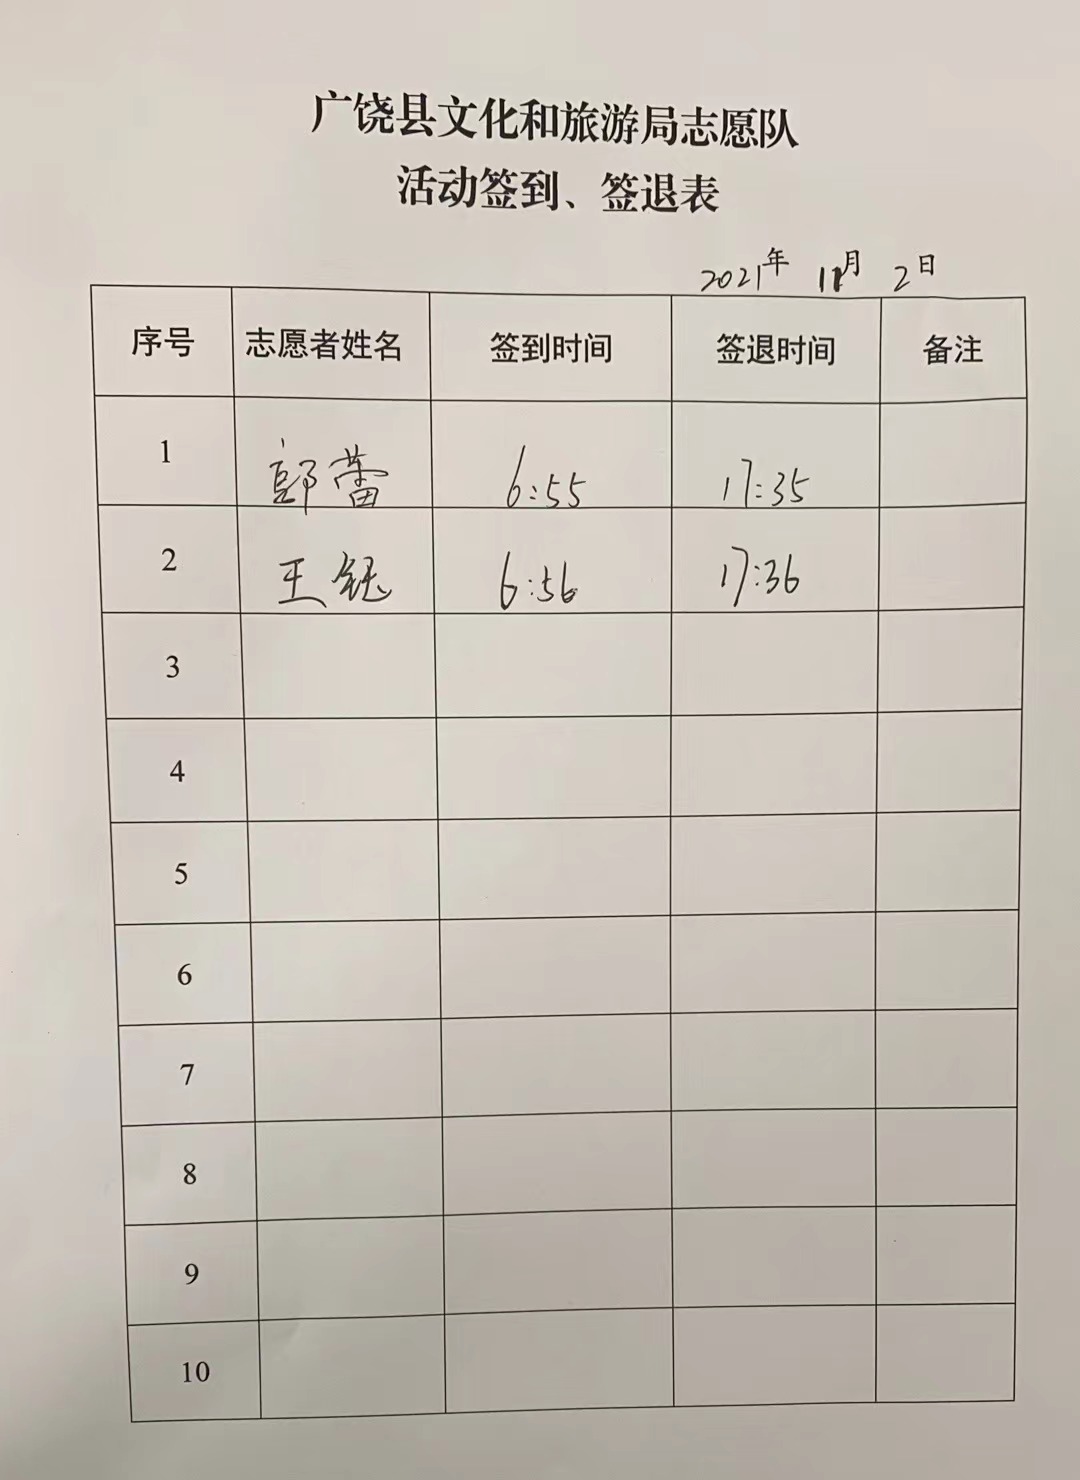 广饶县文化和旅游局志愿队
活动签到、签退表
2021年 11月 2日
序号 志愿者姓名 签到时间 签退时间 备注
1 郭蕾 6:55 17:35
2 王钰 6:56 17:36
3
4
5
6
7
8
9
10